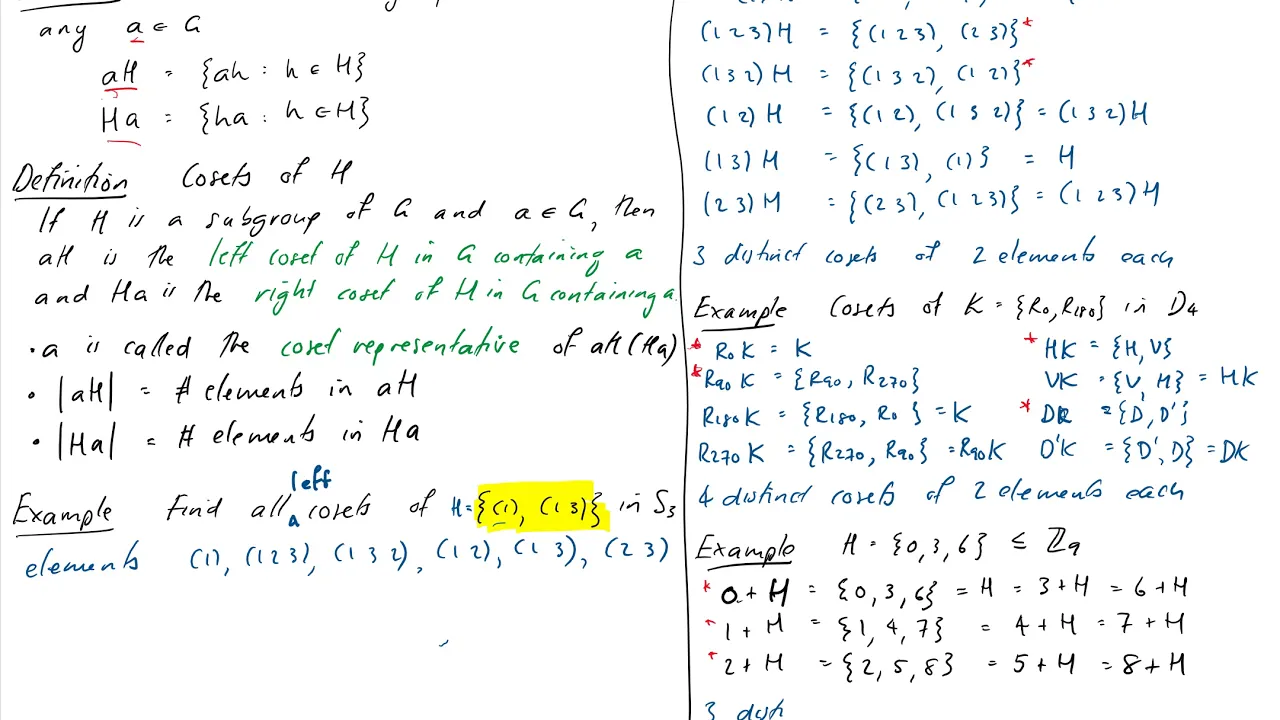 any a ∈ G
aH = {ah : h ∈ H}
Ha = {ha : h ∈ H}
Definition Cosets of H
If H is a subgroup of G and a ∈ G, then
aH is the left coset of H in G containing a
and Ha is the right coset of H in G containing a.
• a is called the coset representative of aH (Ha)
• |aH| = # elements in aH
• |Ha| = # elements in Ha
Example Find all left cosets of H = {(1), (1 3)} in S3
elements (1), (1 2 3), (1 3 2), (1 2), (1 3), (2 3)
(1 2 3)H = {(1 2 3), (2 3)}*
(1 3 2)H = {(1 3 2), (1 2)}*
(1 2)H = {(1 2), (1 3 2)} = (1 3 2)H
(1 3)H = {(1 3), (1)} = H
(2 3)H = {(2 3), (1 2 3)} = (1 2 3)H
3 distinct cosets of 2 elements each
Example Cosets of K = {R0, R180} in D4
* R0 K = K
* R90 K = {R90, R270}
R180 K = {R180, R0} = K
R270 K = {R270, R90} = R90K
* HK = {H, V}
VK = {V, H} = HK
* DK = {D, D'}
D'K = {D', D} = DK
4 distinct cosets of 2 elements each
Example H = {0, 3, 6} ≤ ℤ9
* 0 + H = {0, 3, 6} = H = 3 + H = 6 + H
* 1 + H = {1, 4, 7} = 4 + H = 7 + H
* 2 + H = {2, 5, 8} = 5 + H = 8 + H
3 disti